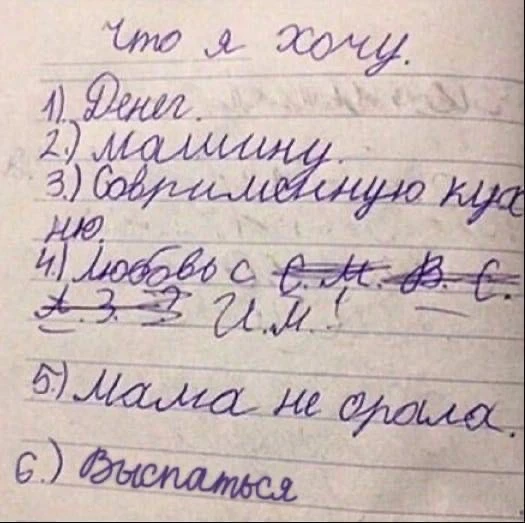 Что я хочу.
1). Денег.
2.) Машину.
3.) Соврименную кух
ню.
4.) Любовь с С. М. В. С.
А. З. З И. М.!
5.) Мама не орала.
6.) Выспаться